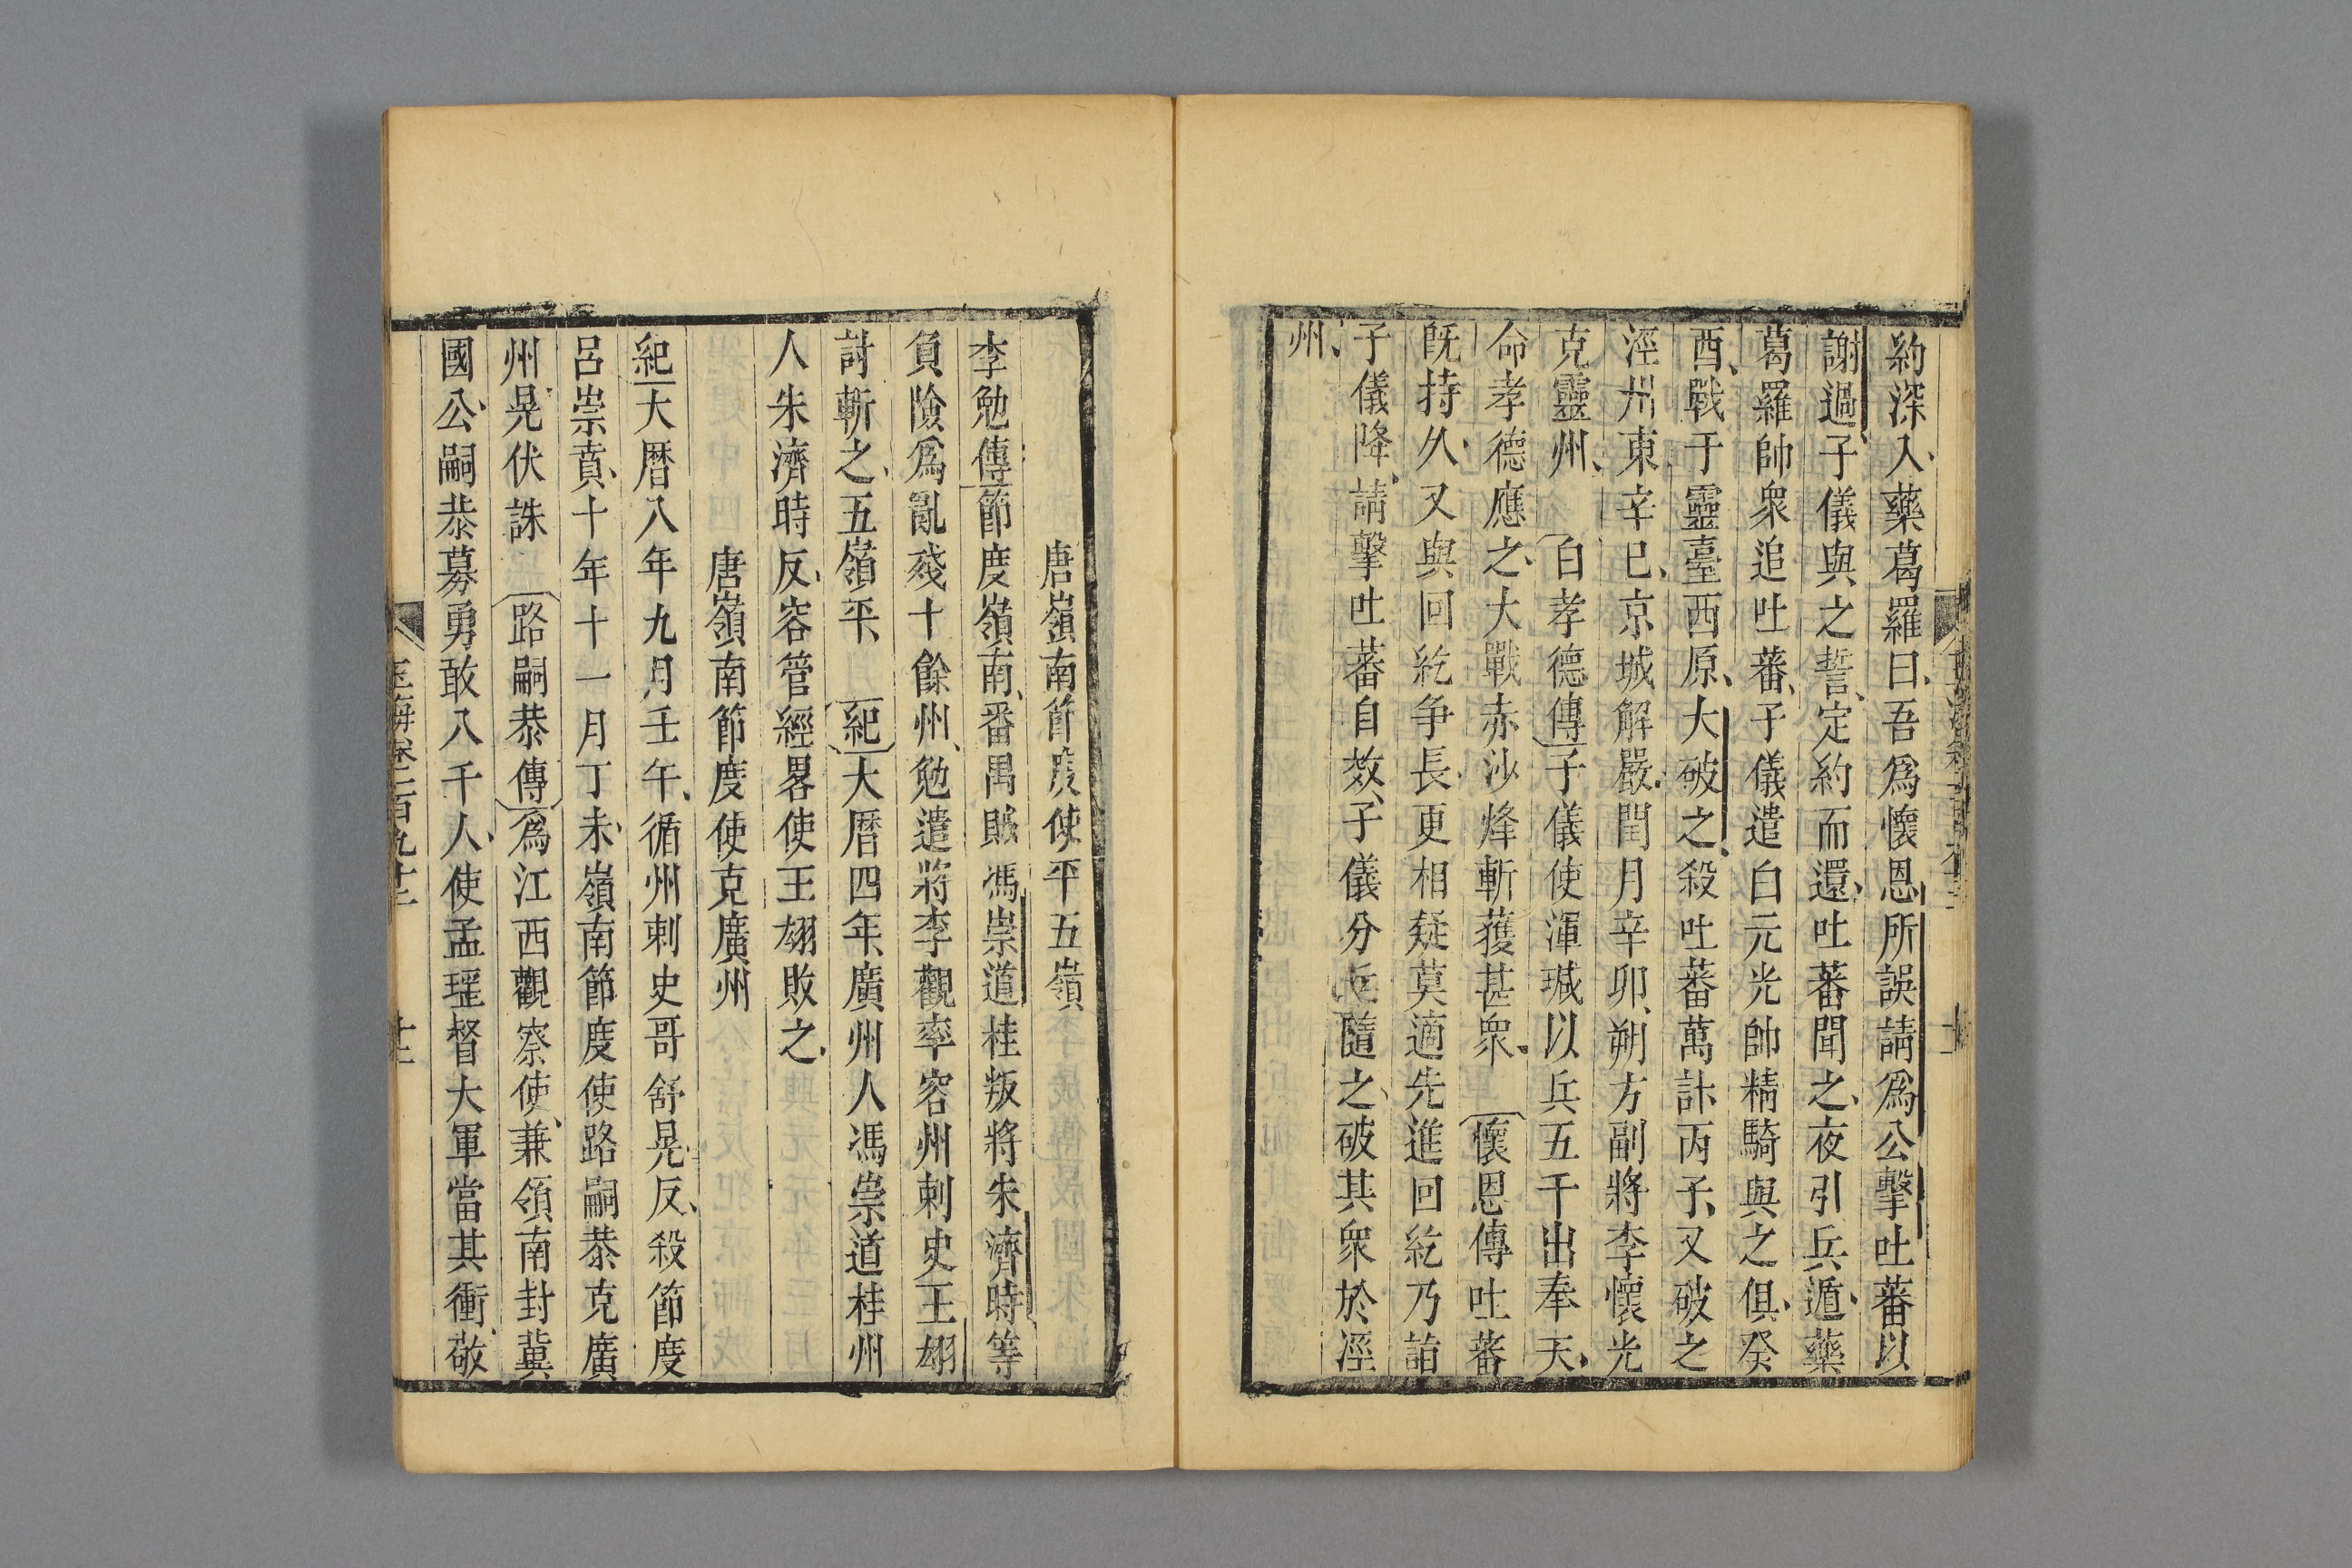 約深入藥葛羅曰吾爲懷恩所誤請爲公擊吐蕃以
謝過子儀與之誓定約而還吐蕃聞之夜引兵遁藥
葛羅帥衆追吐蕃子儀遣白元光帥精騎與之俱癸
酉戰于靈臺西原大破之殺吐蕃萬計丙子又破之
涇州東辛巳京城解嚴閏月辛卯朔方副將李懷光
克靈州 白孝德傳子儀使渾瑊以兵五千出奉天
命孝德應之大戰赤沙烽斬獲甚衆 懷恩傳吐蕃
旣持久又與回紇争長更相疑莫適先進回紇乃詣
子儀降請擊吐蕃自效子儀分兵隨之破其衆於涇
州
唐嶺南節度使平五嶺
李勉傳節度嶺南番禺賊馮崇道桂叛將朱濟時等
負險爲亂殘十餘州勉遣將李觀率容州刺史王翃
討斬之五嶺平 紀大曆四年廣州人馮崇道桂州
人朱濟時反容管經畧使王翃敗之
唐嶺南節度使克廣州
紀大曆八年九月壬午循州刺史哥舒晃反殺節度
呂崇賁十年十一月丁未嶺南節度使路嗣恭克廣
州晃伏誅 路嗣恭傳爲江西觀察使兼領南封冀
國公嗣恭募勇敢八千人使孟瑶督大軍當其衝敬
玉海卷一百九十一